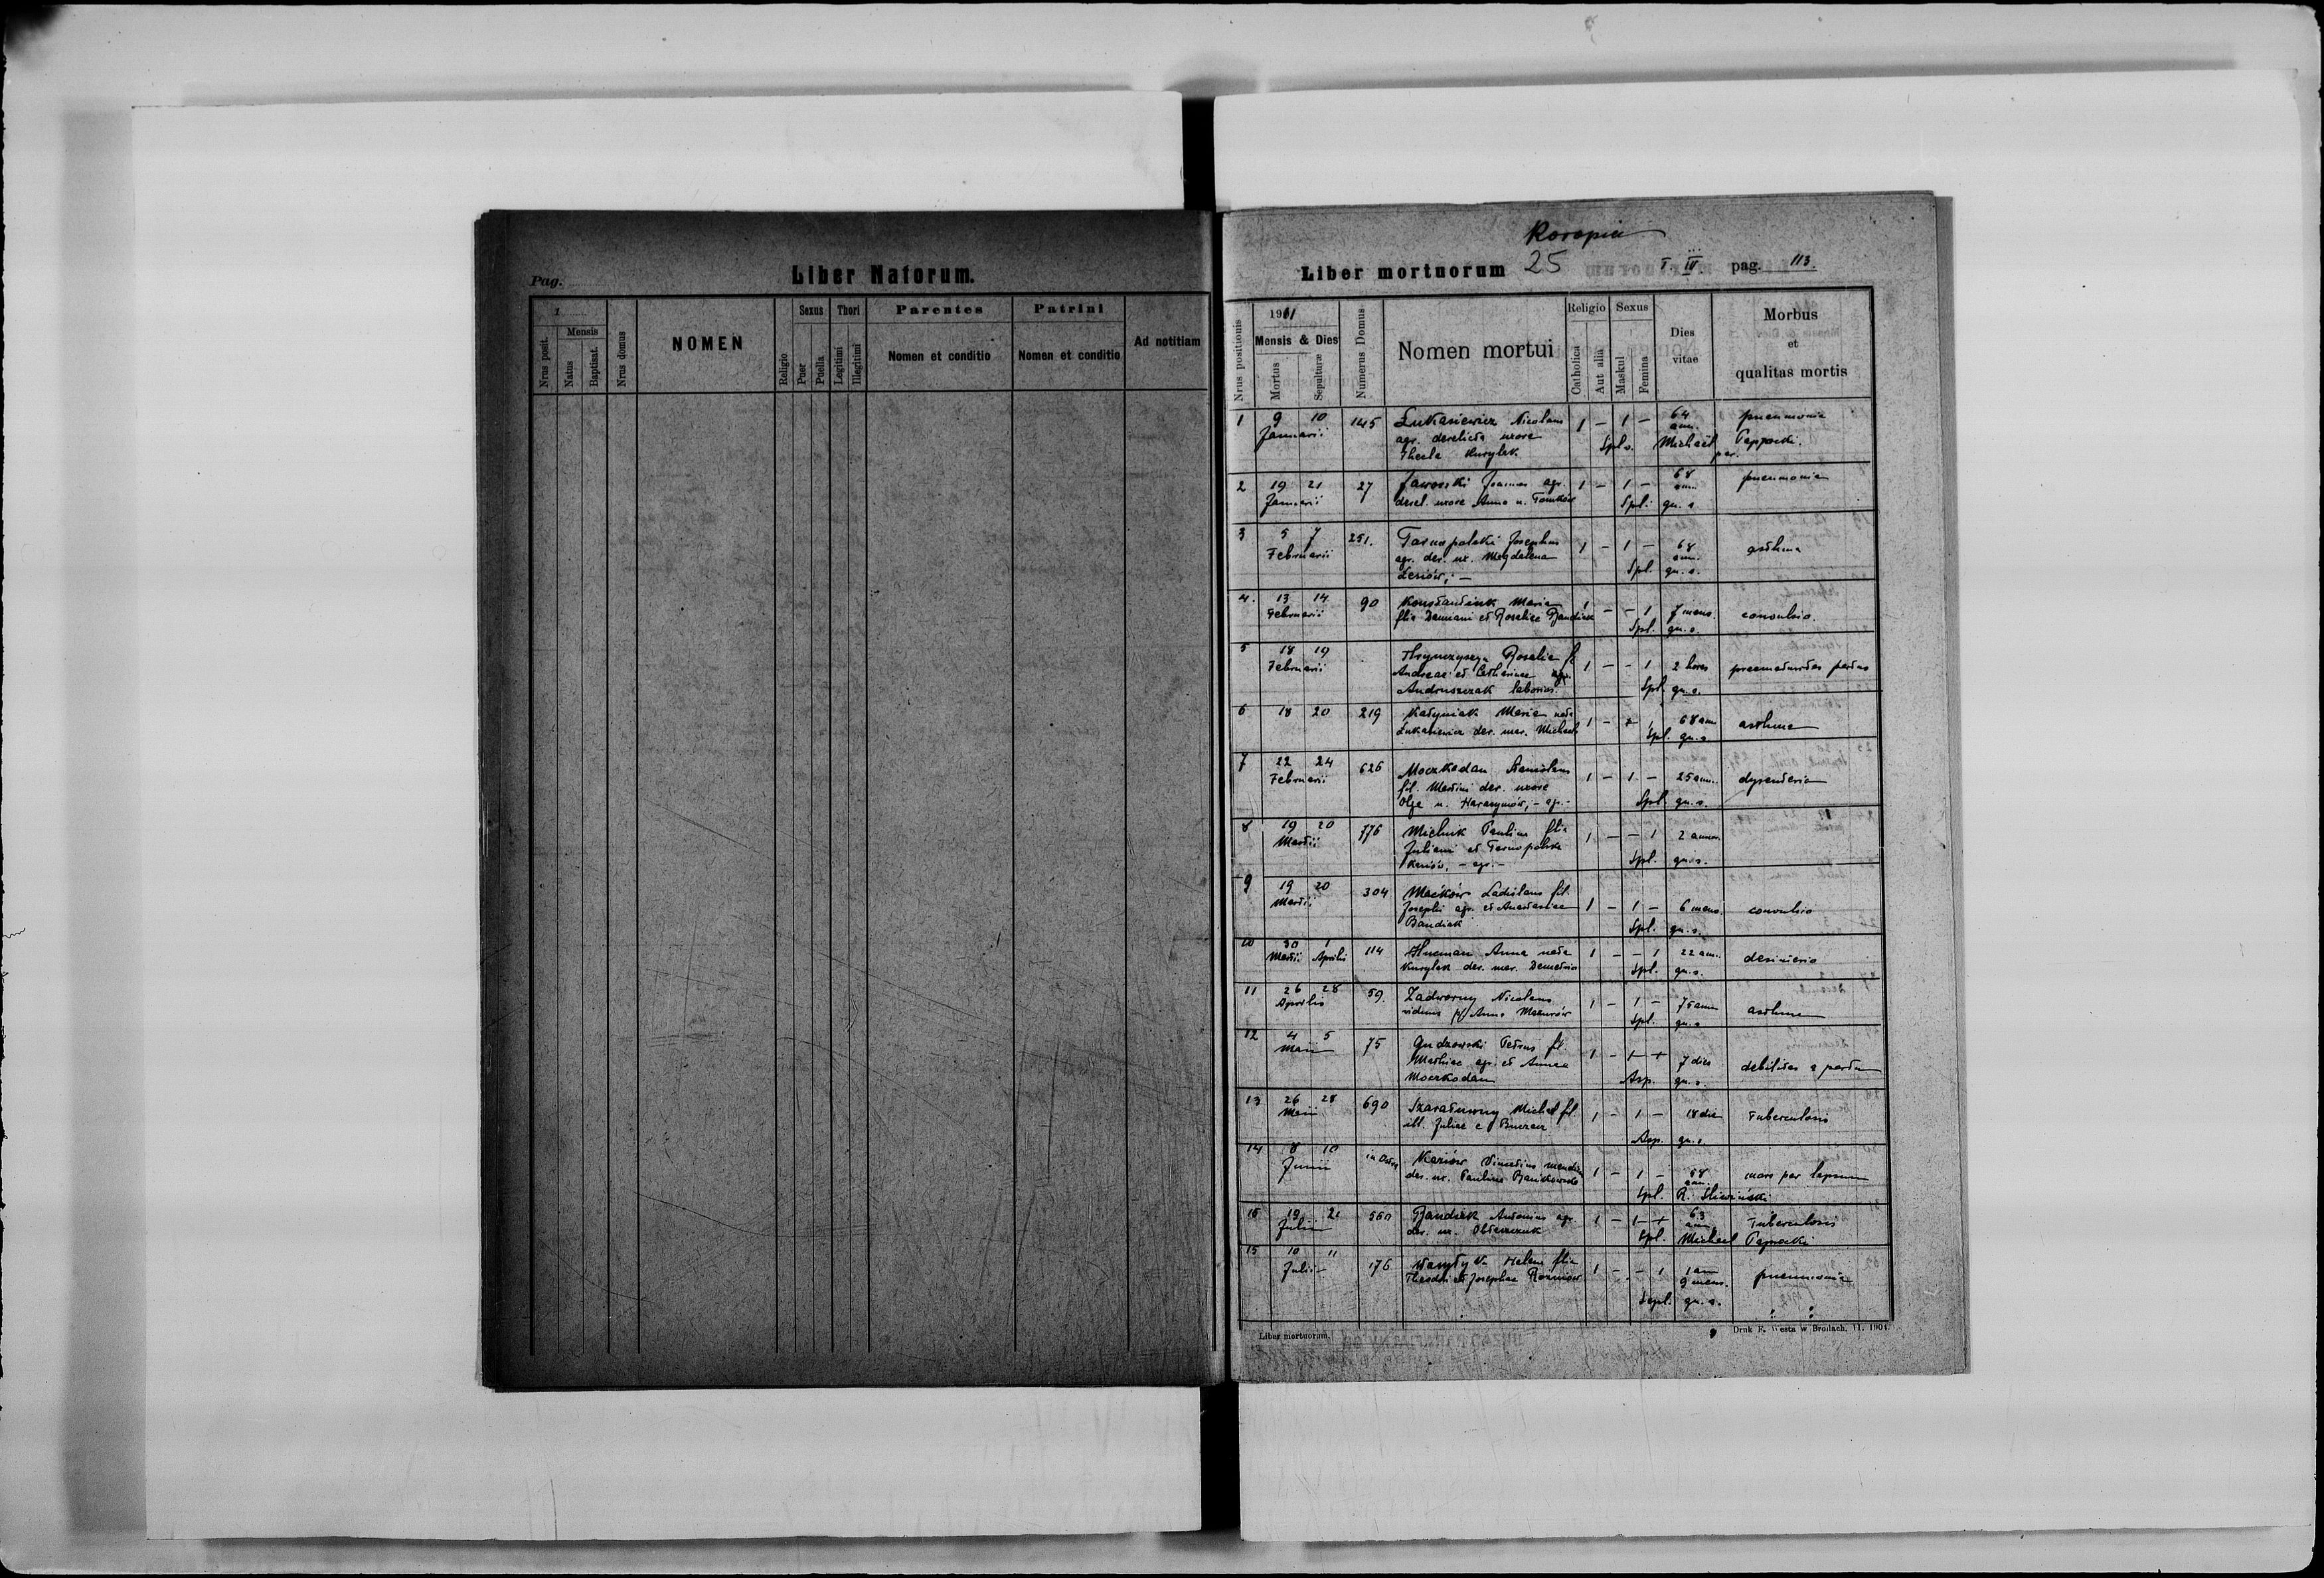 Pag.
Liber Natorum.
1
Nrus posit.
Mensis
Natus
Baptisat.
Nrus domus
NOMEN
Religio
Sexus
Puer
Puella
Thori
Legitimi
Illegitimi
Parentes
Nomen et conditio
Patrini
Nomen et conditio
Ad notitiam
Koropiec
Liber mortuorum 25 T. IV pag. 113.
Nrus positionis
1941
Mensis & Dies
Mortus
Sepulturæ
Numerus Domus
Nomen mortui
Religio
Catholica
Aut alia
Sexus
Maskul
Femina
Dies
vitae
Morbus
et
qualitas mortis
1 9 10 145 Łukasiewicz Nicolaus 1 – 1 – 64 pneumonia
Januarii agr. derelicta uxore ann.
Thecla Kurylak Spl. Michael par.
2 19 21 27 Jaworski Joannes agr. 1 – 1 – 68 pneumonia
Januarii derel. uxore Anna n. Tomków ann.
Spl. qu. s.
3 5 7 251. Tarnopolski Josephus 1 – 1 – 68 asthma
Februarii agr. der. ux. Magdalena ann.
Lesiów, – Spl. qu. s.
4. 13 14 90 Konstantiuk Maria 1 – – 1 7 mens. convulsio
Februarii filia Damiani et Rosaliae Bandiak
Spl. qu. s.
5 18 19 Rosalia f. 1 – – 1 2 horas praematuritas partus
Februarii Andreae et Catharinae
Andruszczak laborios. Spl. qu. s.
6 18 20 219 Maria nata 1 – 1 68 ann asthma
Łukasiewicz der. mar. Michael Spl. qu. s.
7 22 24 626 Moczkodan Stanislaus 1 – 1 – 25 ann. dysenteria
Februarii fil. Martini der. uxore
Olga n. Harasymów, – ag. – Spl. qu. s.
8 19 20 776 Mielnik Paulina filia 1 – – 1 2 annos
Martii Juliani et Tarnopolska
– agr. – Spl. qu. s.
9 19 20 304 Maćków Ladislaus fil. 1 – 1 – 6 mens. convulsio
Martii Josephi agr. et Anastasiae
Bandiak Spl. qu. s.
10 30 1 114 Anna nata 1 – – 1 22 ann.
Martii Aprilis Kurylak der. mar. Demetrio Spl. qu. s.
11 26 28 59. Zadworny Nicolaus 1 – 1 – 75 ann asthma
Aprilis viduus Anna Mazurów Spl. qu. s.
12 4 5 75 Gudzowski Petrus fil. 1 – 1 – + 7 dies debilitas a partu
Maii Mathiae agr. et Annae
Moczkodan Asp. qu. s.
13 26 28 690 Michael fil. 1 – 1 – 18 dies Tuberculosis
Maii ill. Juliae
Asp. qu. s.
14 8 10 Kariów 1 – 1 – 58 mors per lapsum
Junii der. ux. Paulina ann.
Spl. R. Śliwiński
16 19 21 560 Bandiak Antonius agr. 1 – 1 – + 63 Tuberculosis
Julii der. ux. ann.
Spl. Michael
15 10 11 176 Helena filia 1 – – 1 1 ann pneumonia
Julii Theodori et Josephae 9 mens.
Sepl. qu. s.
Liber mortuorum.
Druk F. Westa w Brodach. VI. 1904.